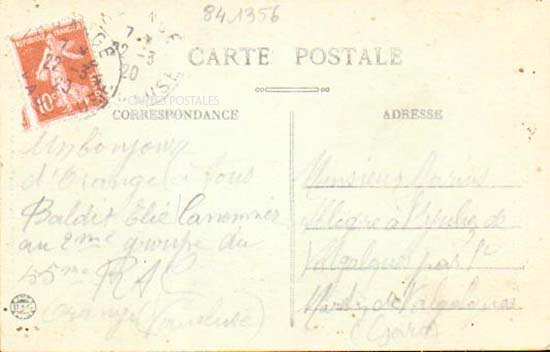 841356
RÉPUBLIQUE FRANÇAISE
10c
ORANGE
7
22-3
20
VAUCLUSE
CARTE POSTALE
CARTES POSTALES
CORRESPONDANCE
ADRESSE
Un bonjour
d'Orange à tous
Baldit Elie Canonnier
au 2me groupe du
55me R A C
Orange (Vaucluse)
Monsieur Marius
Alegre à de
par St
Martin de Valgalgues
(Gard)